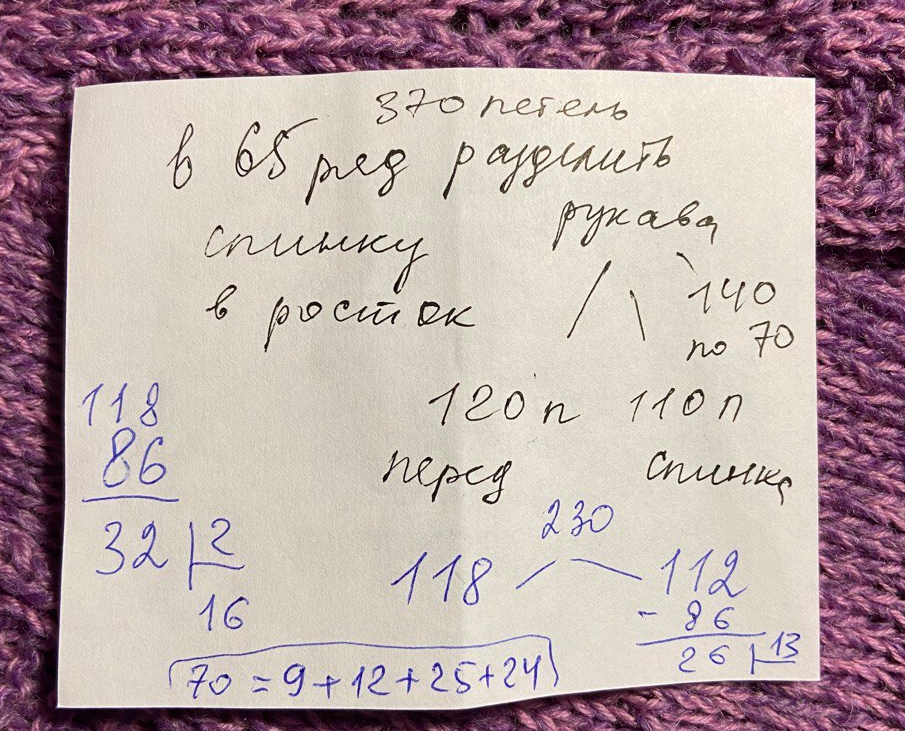 370 петель
в 65 ряд разделить
рукава
спинку
в росток
140
по 70
120 п 110 п
перед спинка
118
86
32 2
16
230
118 112
- 86
26 13
70 = 9 + 12 + 25 + 24